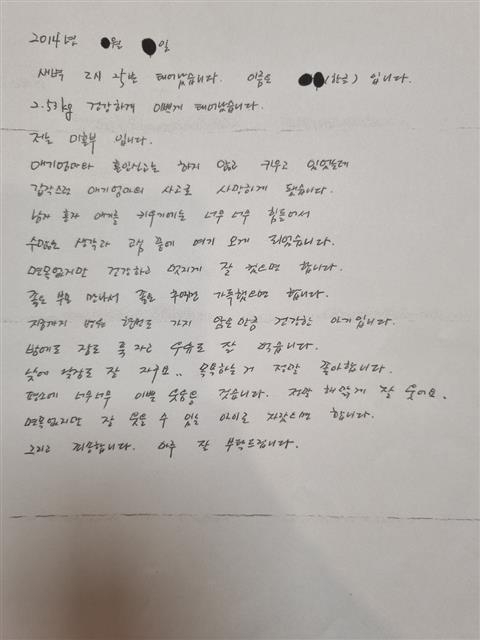 2014년 월 일
새벽 2시 25분 태어났습니다. 이름은 (한글) 입니다.
2.53kg 건강하게 이쁘게 태어났습니다.
저는 미혼부 입니다.
애기엄마와 혼인신고는 하지 않고 키우고 있었는데
갑작스런 애기엄마의 사고로 사망하게 됐습니다.
남자 혼자 애기를 키우기에는 너무 너무 힘들어서
수많은 생각과 고심 끝에 여기 오게 되었습니다.
면목없지만 건강하고 멋지게 잘 컸으면 합니다.
좋은 부모 만나서 좋은 추억만 가득했으면 합니다.
지금까지 병은 한번도 가지 않은 만큼 건강한 아기입니다.
밤에도 잠도 푹 자고 우유도 잘 먹습니다.
낮에 낮잠도 잘 자구요.. 목욕하는 거 정말 좋아합니다.
평소에 너무너무 이쁜 웃음을 짓습니다. 정말 해맑게 잘 웃어요.
면목없지만 잘 웃을 수 있는 아이로 자랐으면 합니다.
그리고 죄송합니다. 아주 잘 부탁드립니다.